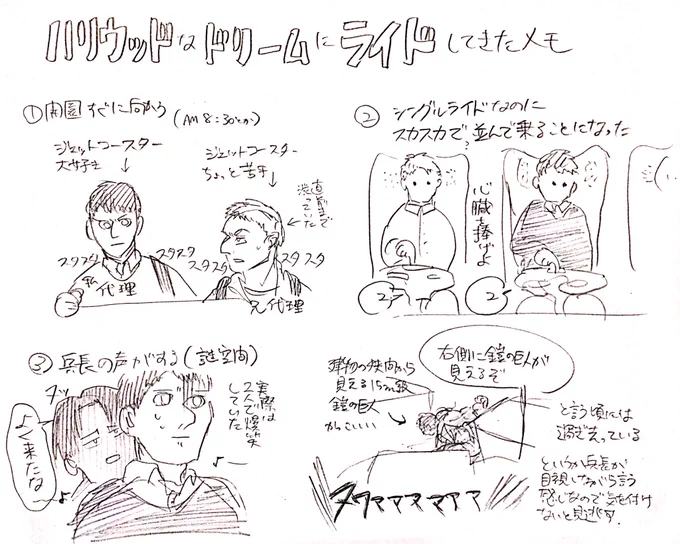 ハリウッドなドリームにライドしてきたメモ
①開園すぐに向かう (AM 8:30とか)
ジェットコースター
大好き
ジェットコースター
ちょっと苦手
直前まで
渋っていた
スタスタ
スタスタ
スタスタ
スタスタ
私代理
兄代理
②シングルライドなのに
スカスカで並んで乗ることになった
心臓を捧げよ
③兵長の声がする(謎空間)
実際は
2人で爆笑
していた
ヌッ
よく来たな
建物の狭間から
見える15m級
鎧の巨人
かっこいい
右側に鎧の巨人が
見えるぞ
と言う頃には
過ぎ去っている
というか兵長が
目視しながら言う
感じなので気を付け
ないと見逃す.